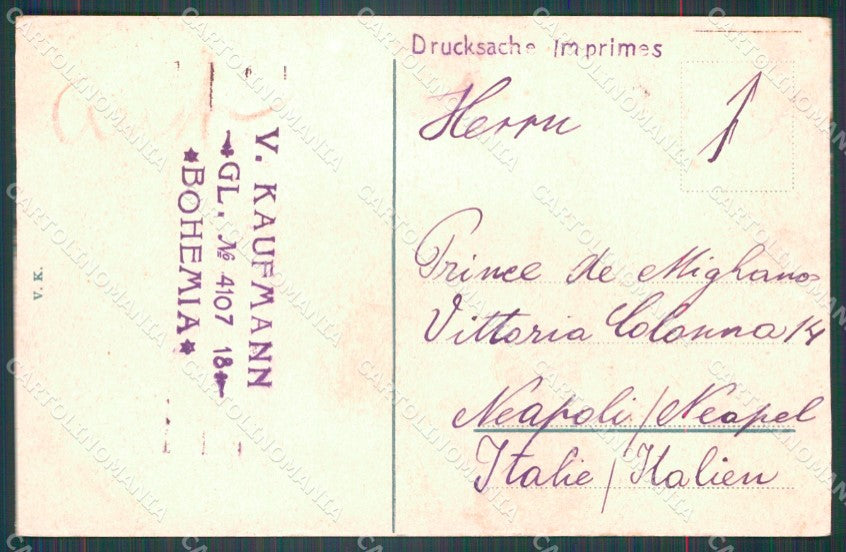 Drucksache Imprimes
Herrn
Prince de Mighano
Vittoria Colonna 14
Neapoli / Neapel
Italie / Italien
V. KAUFMANN
GL. № 4107 18
★BOHEMIA★
V. K.
CARTOLINOMANIA